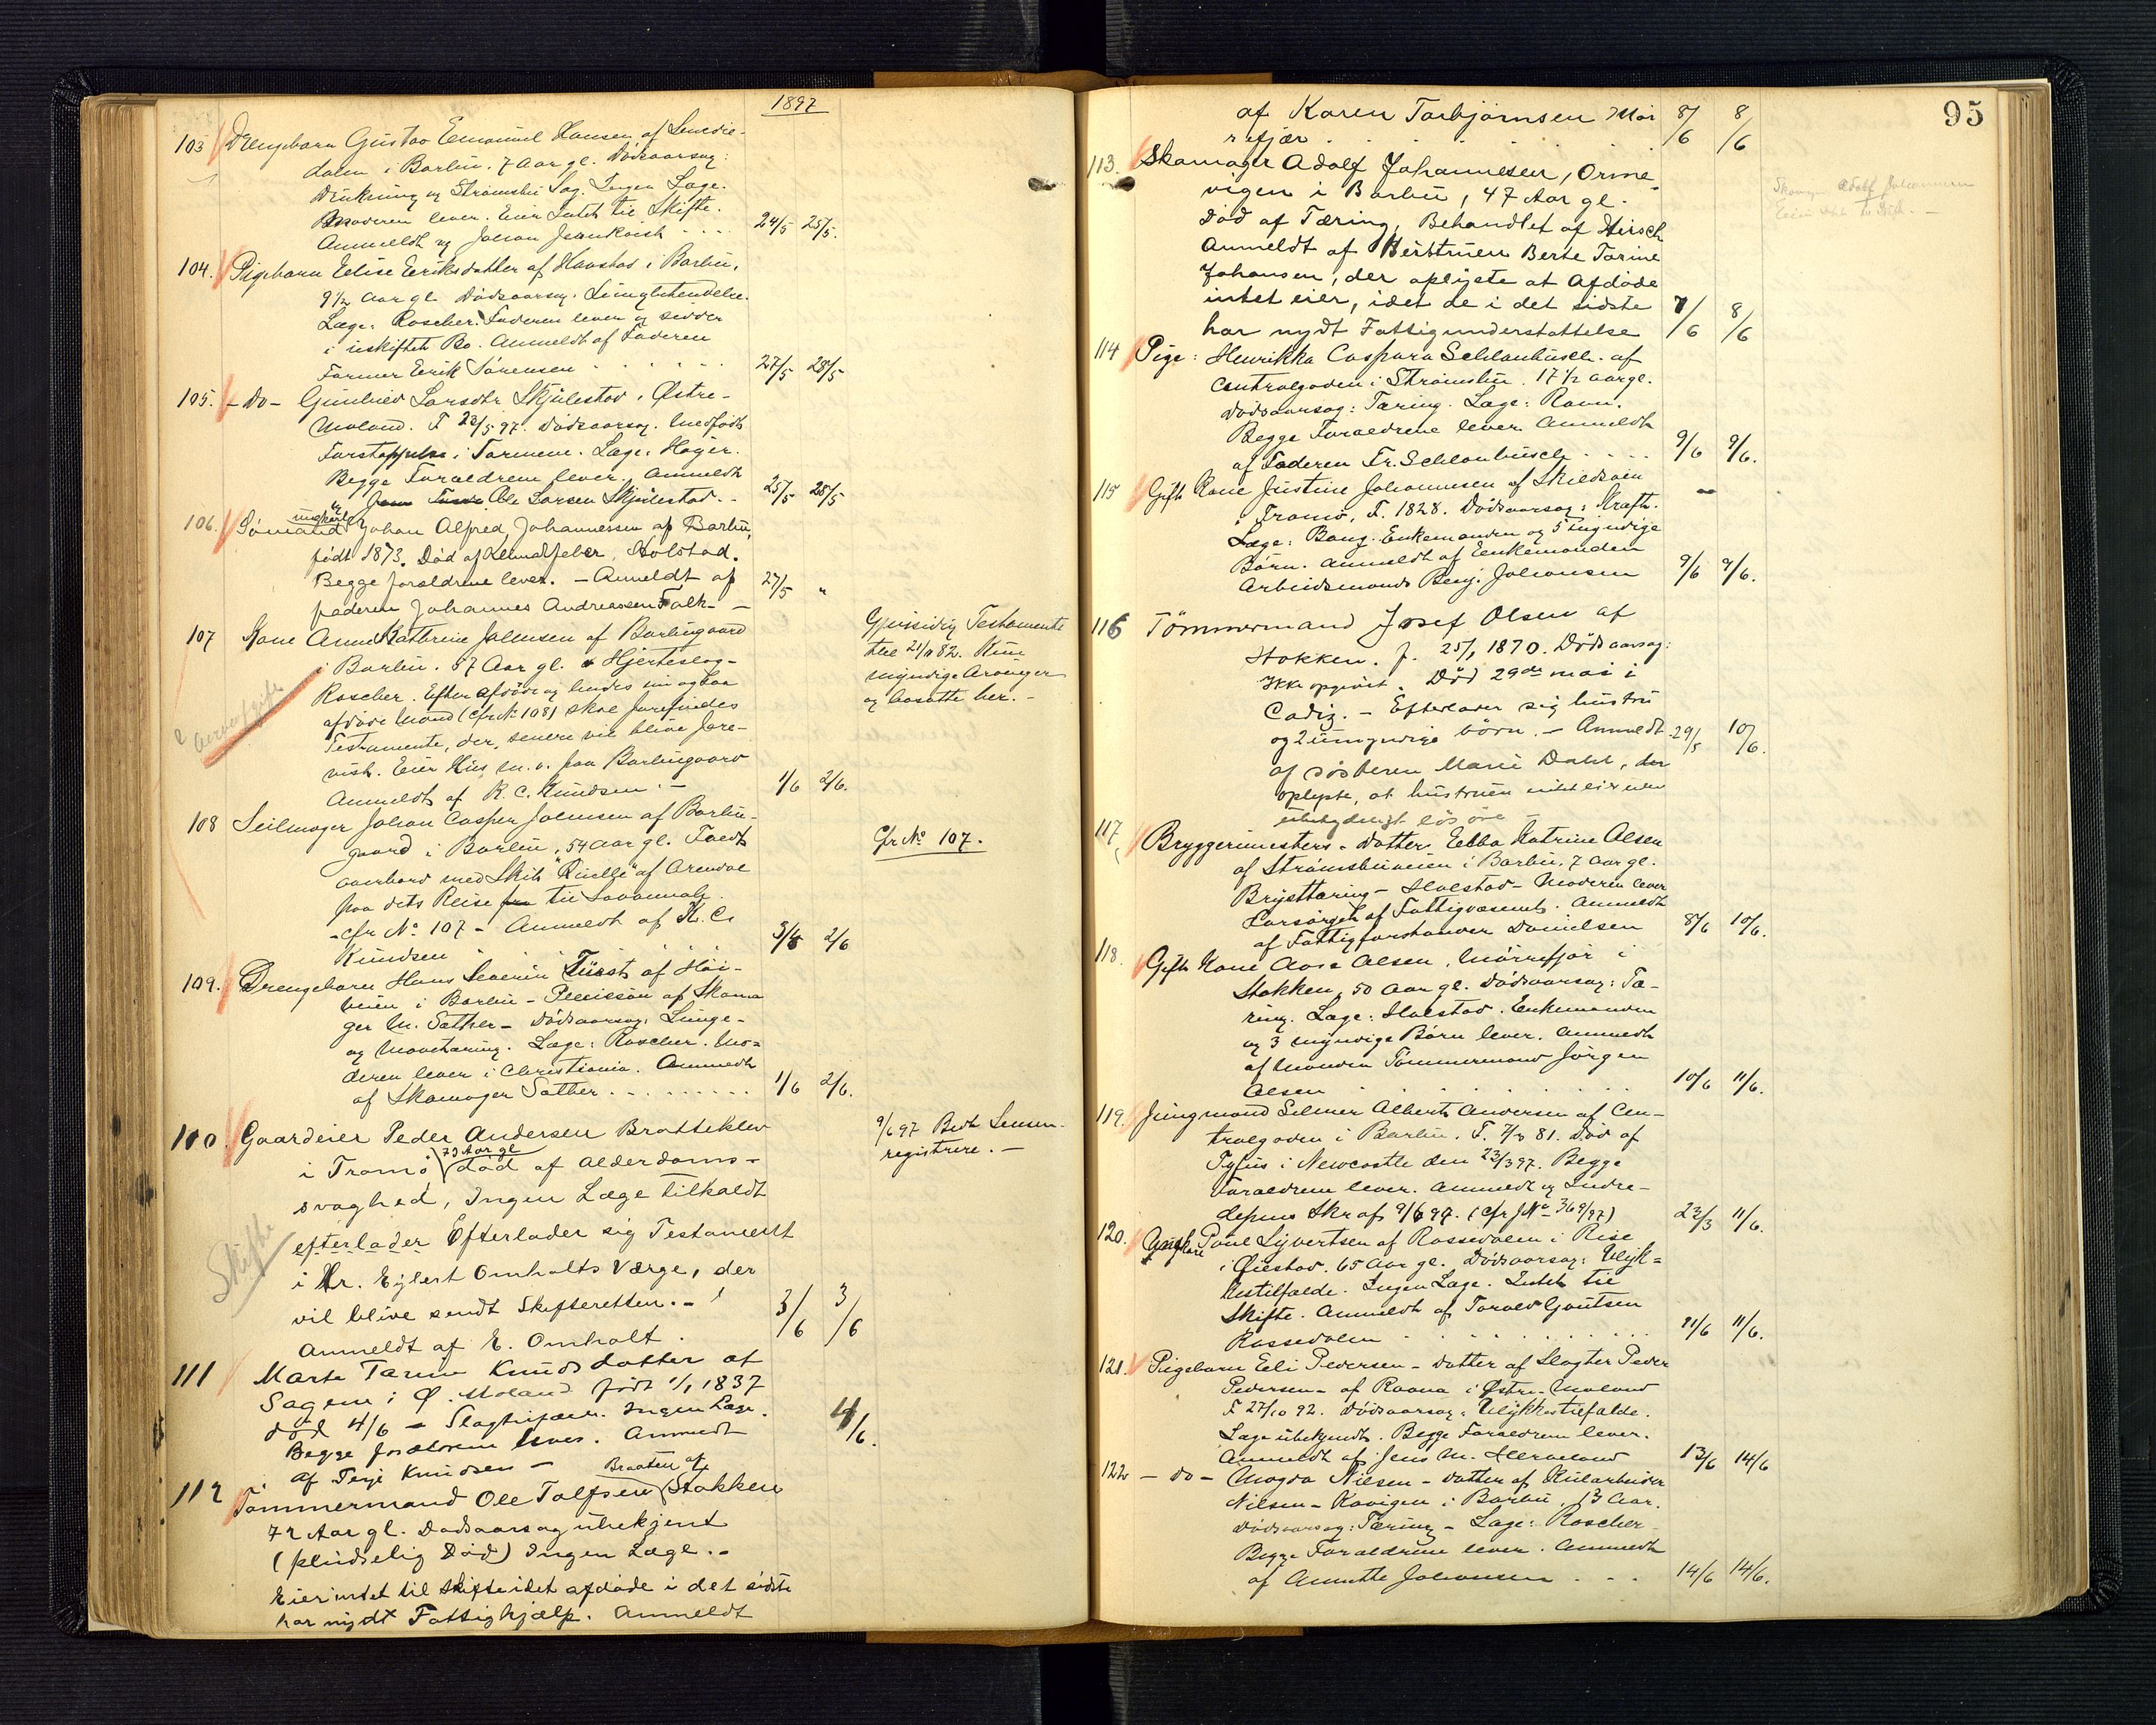 1897
103 Drengebarn Gustav Emanuel Hansen af
dalen i Barbu. 7 Aar gl. Dødsaarsag:
Drukning og Strømsbu Sag. Ingen Læge.
Moderen lever. Eier Intet til Skifte.
Anmeldt af Johan 24/5 25/5.
104. Pigebarn Elise Eeriksdatter af Havstad i Barbu,
9½ Aar gl. Dødsaarsag. Lungebetændelse.
Læge: Roscher. Faderen lever og sidder
i uskiftet Bo. Anmeldt af Faderen
Farmer Eerik Sørensen 27/5 28/5
105. - do - Gunhild Larsdtr. Skjulestad, Østre-
Moland. F 23/5 97. Dødsaarsag. Medfødt
Forstoppelse i Tarmene. Læge: Høyer.
Begge Forældrene lever, Anmeldt
af Ole Larsen Skjulestad. - 25/5 28/5
106. Sømand ungkarl Johan Alfred Johannessen af Barbu,
født 1873. Død af Klimatfeber, Holstad.
Begge forældrene lever. - Anmeldt af
faderen Johannes Andreassen Falk - 27/5 "
107 Kone Anne Kathrine Jalmsen af Barbugaard
i Barbu. 57 Aar gl. Hjerteslag -
Roscher. Efter Afdøde og hendes nu ogsaa
afdøde Mand (cfr No 108) skal forefindes
Testamente, der, senere vil blive fore-
vist. Eier Hus m. v. paa Barbugaard
Anmeldt af K. C. Knudsen. - 1/6 2/6.
Gjensidig Testamente
82.
myndige Arvinger
og bosatte her. -
108 Seilmager Johan Casper Jalmsen af Barbu-
gaard i Barbu, 54 Aar gl. Faldt
overbord med Skib "Ruelle" af Arendal
paa dets Reise fra til Savannah.
- cfr No 107 - Anmeldt af K. C.
Knudsen 3/4 2/6
Cfr No 107.
109. Drengebarn Hans Severin Fürst af Høi-
veien i Barbu - Pleiesøn af Skoma
ger M. Sæther - Dødsaarsag: Lunge-
og Mavetæring. Læge: Roscher. Mo-
deren lever i Christiania. Anmeldt
af Skomager Sæther 1/6 2/6.
110. Gaardeier Peder Andersen Bratteklev
i Tromø 79 Aar gl død af Alderdoms-
svaghed, Ingen Læge tilkaldt
efterlader Efterlader sig Testament
i Hr. Eylert Omholts Værge, der
vil blive sendt Skifteretten. -
Anmeldt af E. Omholt. 3/6 3/6
9/6 97 Bedt Lensm.
registrere. -
Skifte
111 Marte Tarine Knudsdatter af
Sagene i Ø. Moland født 1/1 1837
død 4/6 - Slagtilfælde. Ingen Læge.
Begge forældrene lever. Anmeldt
af Terje Knudsen - 4/6.
112 Tømmermand Ole Tolfsen Braaten af Stokken
72 Aar gl. Dødsaarsag ubekjent
(pludselig Død) Ingen Læge. -
Eier intet til Skifte idet afdøde i det sidste
har nydt Fattighjælp. Anmeldt
95
af Karen Torbjørnsen Mør
refjær 8/6 8/6
113. Skomager Adolf Johannesen, Orme-
vigen i Barbu, 47 Aar gl.
Død af Tæring, Behandlet af Hirsch
Anmeldt af Hustruen Berte Tarine
Johansen, der oplyste at Afdøde
intet eier, idet de i det sidste
har nydt Fattigunderstøttelse 7/6 8/6
Adolf Johannesen
114 Pige: Henrikka Caspara Schlanbusch af
Centralgaden i Strømsbu. 17½ Aar gl.
Dødsaarsag: Tæring. Læge: Ravn.
Begge Forældrene lever. Anmeldt
af Faderen Fr. Schlanbusch 9/6 9/6.
115 Gift Kone Justine Johannesen af Skilsøen
i Tromø, F. 1828. Dødsaarsag: Kræft.
Læge: Bang. Enkemanden og 5 myndige
Børn. Anmeldt af Enkemanden
Arbeidsmand Benj. Johansen 9/6 9/6.
116 Tømmermand Josef Olsen af
Stokken. f. 25/1 1870. Dødsaarsag:
Ikke opgivet. Død 29de mai i
Cadiz. - Efterlader sig hustru
og 2 umyndige børn. - Anmeldt 29/5 10/6.
af søsteren Marie Dahl, der
oplyste, at hustruen intet eier uden
ubetydeligt løsøre -
117 Bryggerimesters-Datter Ebba Katrine Olsen
af Strømsbuveien i Barbu, 7 Aar gl.
Brysttæring - Holstad - Moderen lever
Forsørget af Fattigvæsenet. Anmeldt
af Fattigforstander Danielsen 8/6 10/6.
118. Gift Kone Aase Olsen, Mørrefjær i
Stokken, 50 Aar gl. Dødsaarsag: Tæ-
ring. Læge: Holstad. Enkemanden
og 3 myndige Børn lever. Anmeldt
af Manden Tømmermand Jørgen
Olsen 10/6 11/6.
119. Jungmand Selmer Albert Andersen af Cen-
tralgaden i Barbu. F. 7/3 81. Død af
Tyfus i Newcastle den 23/3 97. Begge
Forældrene lever. Anmeldt af Indre-
depms Skr af 9/6 97. (cfr J No 369/97) 23/3 11/6.
120. Ungkarl Povel Syvertsen af Rossedalen i Rise
i Øiestad. 65 Aar gl. Dødsaarsag: Ulyk-
kestilfælde. Ingen Læge. Intet til
Skifte. Anmeldt af Torvald Gautsen
Rossedalen 11/6 11/6.
121. Pigebarn Eeli Pedersen - datter af Slagter Peder
Pedersen - af Raana i Østre-Moland
F 27/10 92. Dødsaarsag: Ulykkestilfælde.
Læge ubekjendt. Begge Forældrene lever.
Anmeldt af Jens M. 13/6 14/6
122 - do - Magda Nilsen - datter af Kularbeider
Nilsen - Kovigen i Barbu, 13 Aar.
Dødsaarsag: Tæring - Læge: Roscher
Begge Forældrene lever. Anmeldt
af Annette Johansen 14/6 14/6.